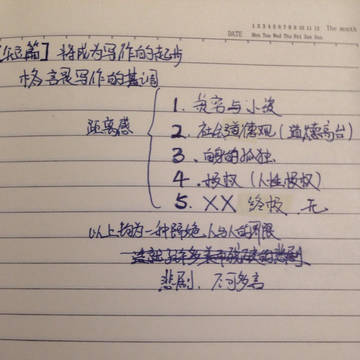 DATE 1 2 3 4 5 6 7 8 9 10 11 12 The month
Mon Tue Wed Thu Fri Sat Sun
篇】将成为写作的起步
格言是写作的基调
距离感
1. 与小
2. 社会道德观（道德高台）
3. 自身的孤独
4. 授权（人性授权）
5. XX 终极 无
以上皆为一种隔绝 人与人的界限
悲剧，不可多言